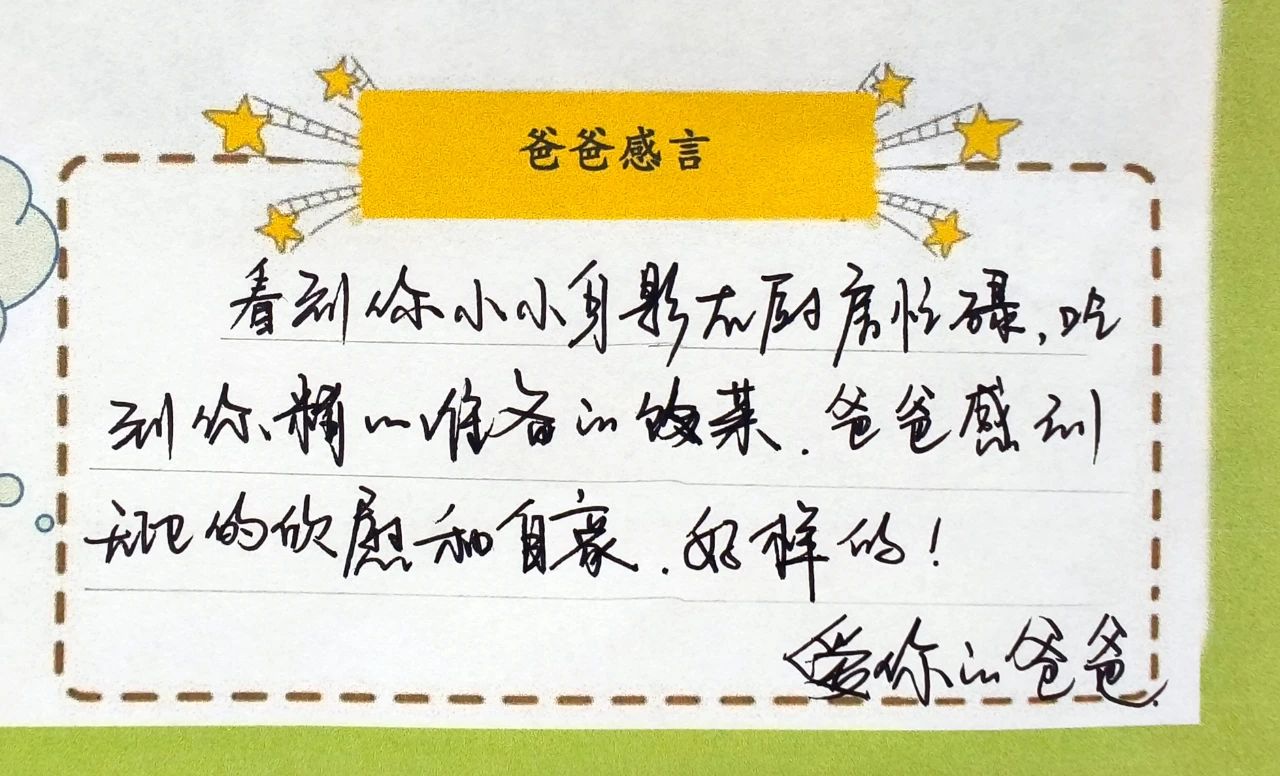 爸爸感言
看到你小小身影在厨房忙碌,吃
到你精心准备的饭菜.爸爸感到
无比的欣慰和自豪.好样的!
爱你的爸爸.